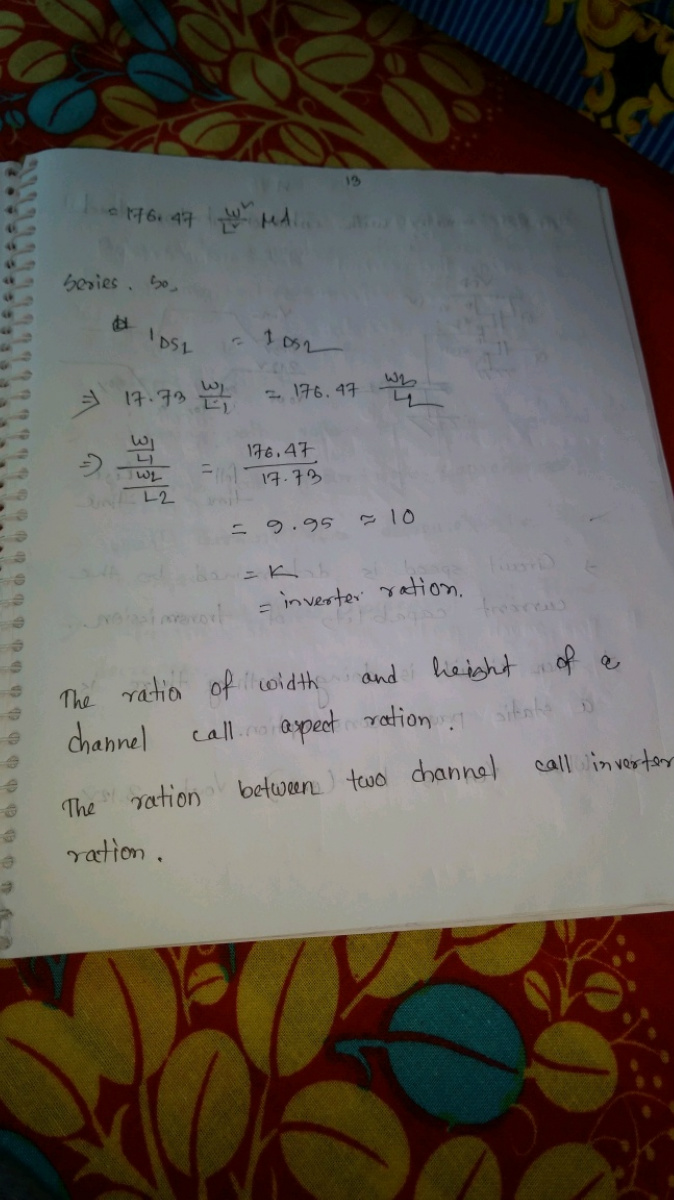 13
= 176.47 W²/L² μA.
Series. So,
I DS1 = I DS2
⇒ 17.73 W1/L1 = 176.47 W2/L2
⇒ (W1/L1)/(W2/L2) = 176.47/17.73
= 9.95 ≈ 10
= K
= inverter ration.
The ratio of width and height of a
channel call aspect ration.
The ration between two channel call inverter
ration.